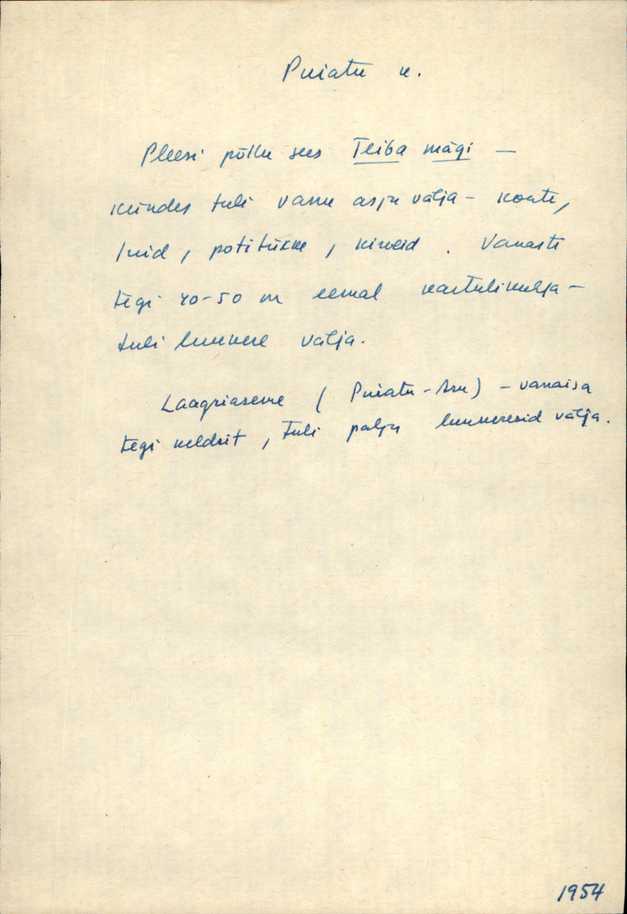 Puiatu k.
Pleesi põllu sees Teiba mägi —
kündes tuli vanu asju välja – konte,
luid, potitükke, kirveid. Vanasti
tegi 40-50 m eemal kartulikuhja –
tuli luukere välja.
Laagriaseme (Puiatu-Aru) – vanaisa
tegi keldrit, tuli palju luukeresid välja.
1954